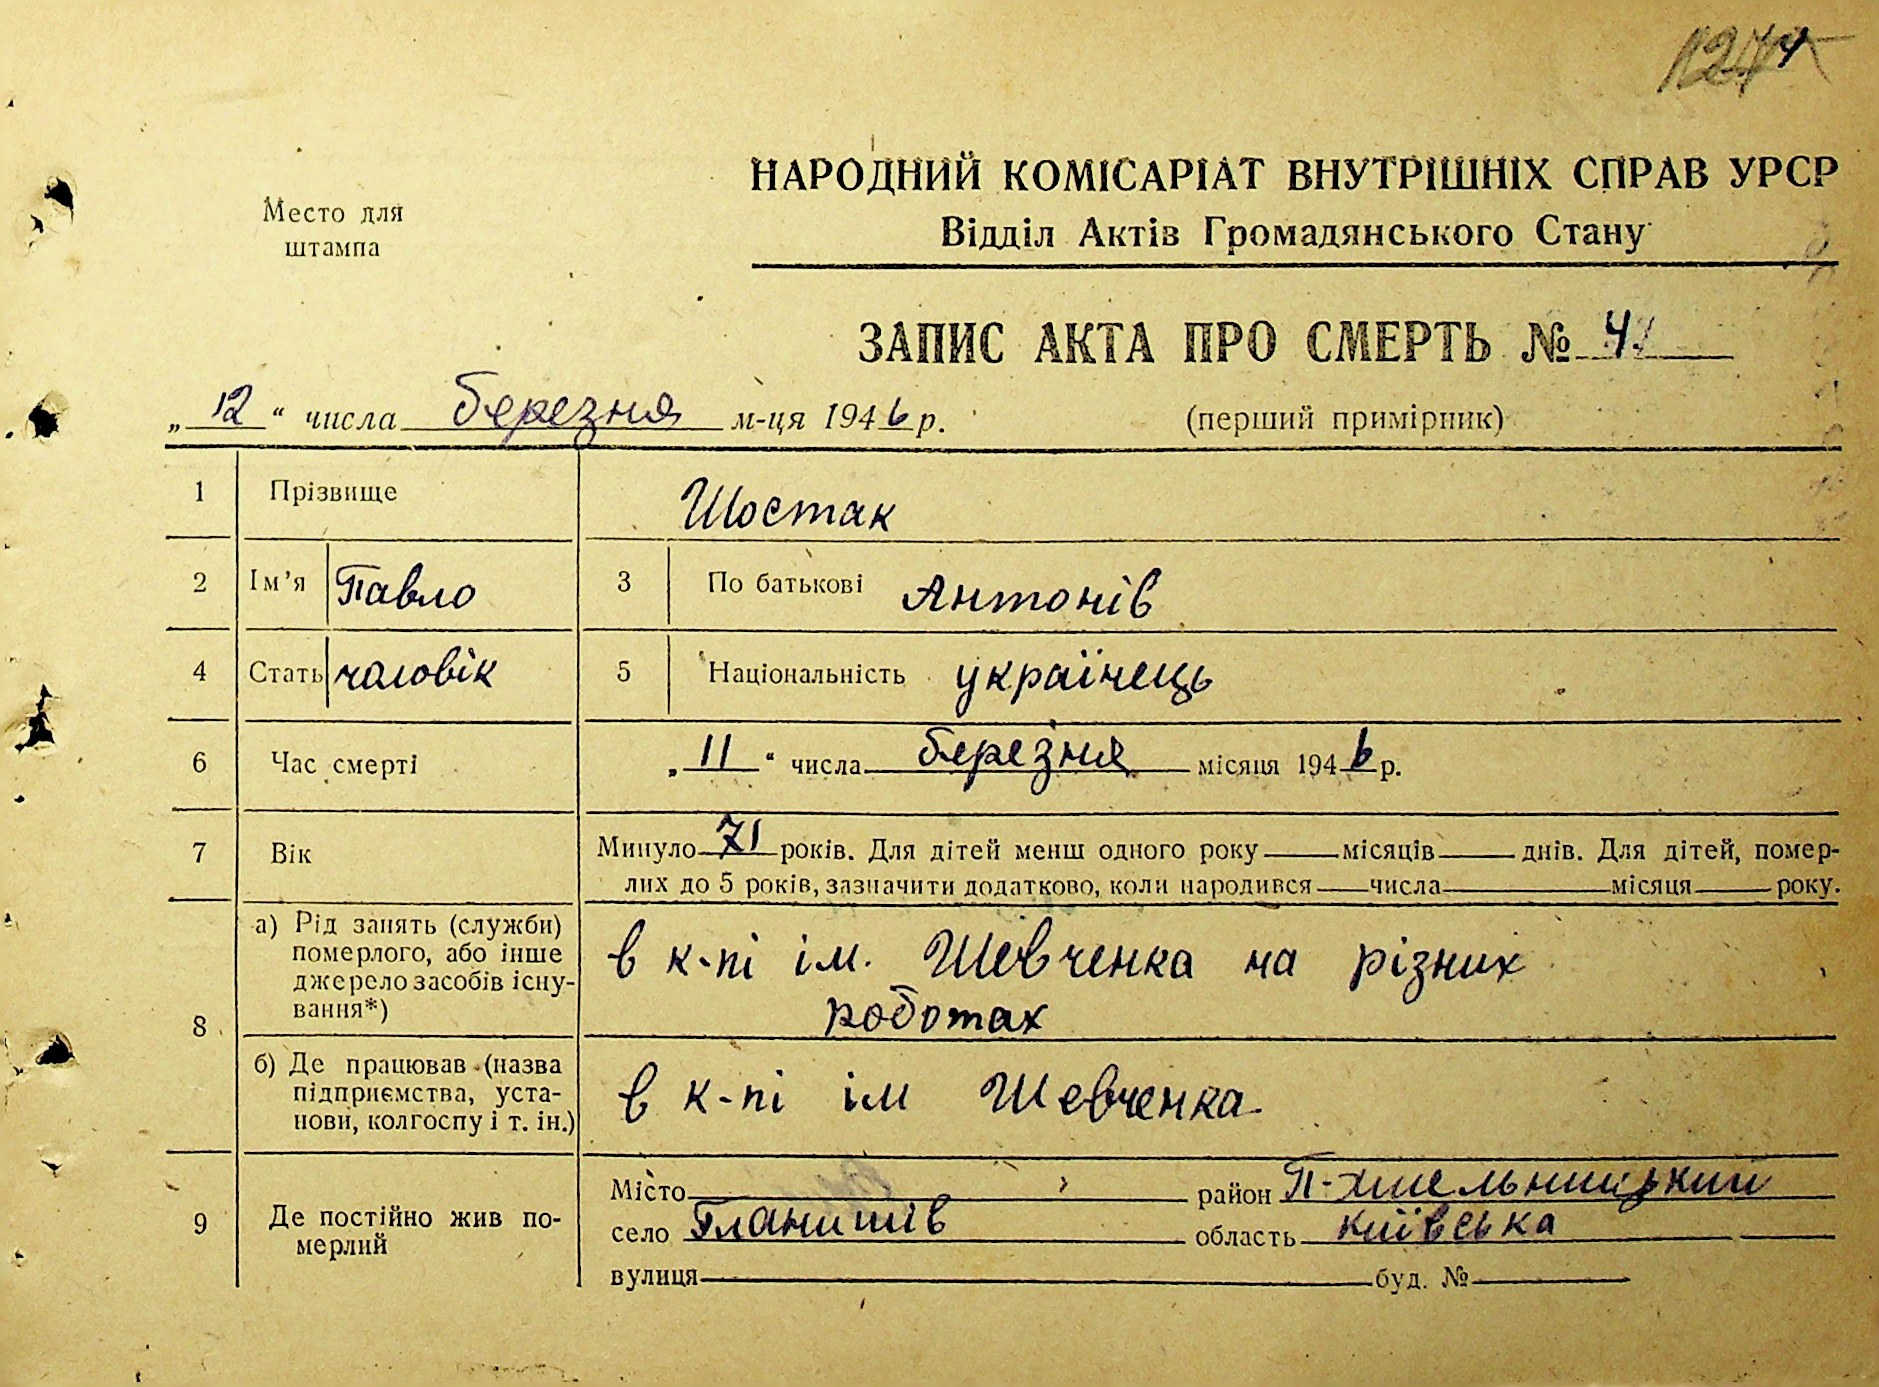 НАРОДНИЙ КОМІСАРІАТ ВНУТРІШНІХ СПРАВ УРСР
Место для
штампа
Відділ Актів Громадянського Стану
ЗАПИС АКТА ПРО СМЕРТЬ № 4
„12“ числа березня м-ця 1946 р.
(перший примірник)
1 Прізвище Шостак
2 Ім'я Павло 3 По батькові Антонів
4 Стать чоловік 5 Національність українець
6 Час смерті „11“ числа березня місяця 1946 р.
7 Вік Минуло 71 років. Для дітей менш одного року — місяців — днів. Для дітей, помер-
лих до 5 років, зазначити додатково, коли народився — числа — місяця — року.
8 а) Рід занять (служби)
померлого, або інше
джерело засобів існу-
вання*)
в к-пі ім. Шевченка на різних
роботах
б) Де працював (назва
підприємства, уста-
нови, колгоспу і т. ін.)
в к-пі ім Шевченка
9 Де постійно жив по-
мерлий
Місто район П-Хмельницький
село Гланишів область київська
вулиця буд. №